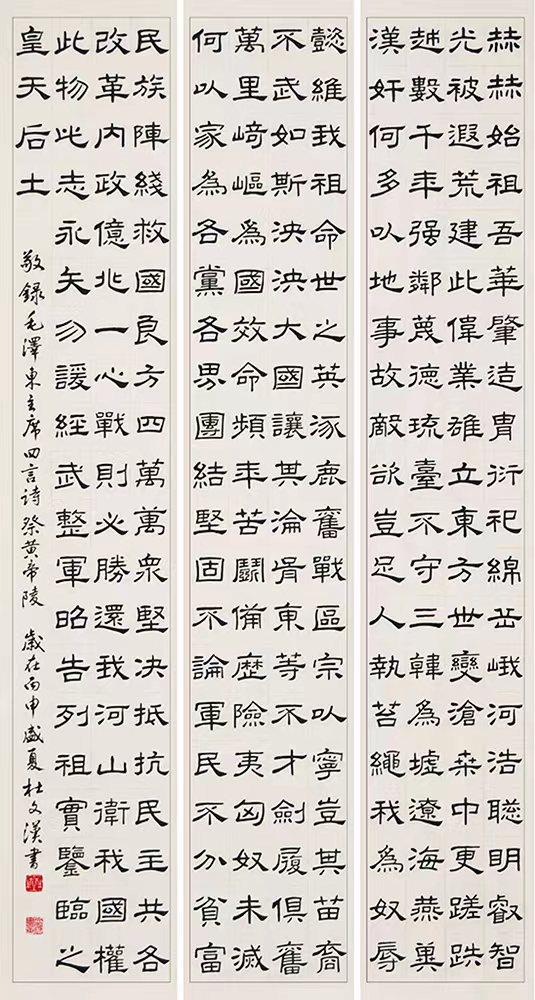 赫赫始祖吾華肇造胄衍祀綿岳峨河浩聰明叡智
光被遐荒建此偉業雄立東方世變滄桑中更蹉跌
越數千年强鄰蔑德琉臺不守三韓為墟遼海燕冀
漢奸何多以地事故敵欲豈足人執笞繩我為奴辱
懿維我祖命世之英涿鹿奮戰區宗以寧豈其苗裔
不武如斯泱泱大國讓其淪胥東等不才劍履俱奮
萬里崎嶇為國效命頻年苦鬪備歷險夷匈奴未滅
何以家為各黨各界團結堅固不論軍民不分貧富
民族陣綫救國良方四萬萬衆堅決抵抗民主共各
改革內政億兆一心戰則必勝還我河山衛我國權
此物此志永矢勿諼經武整軍昭告列祖實鑒臨之
皇天后土
敬錄毛澤東主席四言詩祭黃帝陵 歲在丙申盛夏杜文漢書